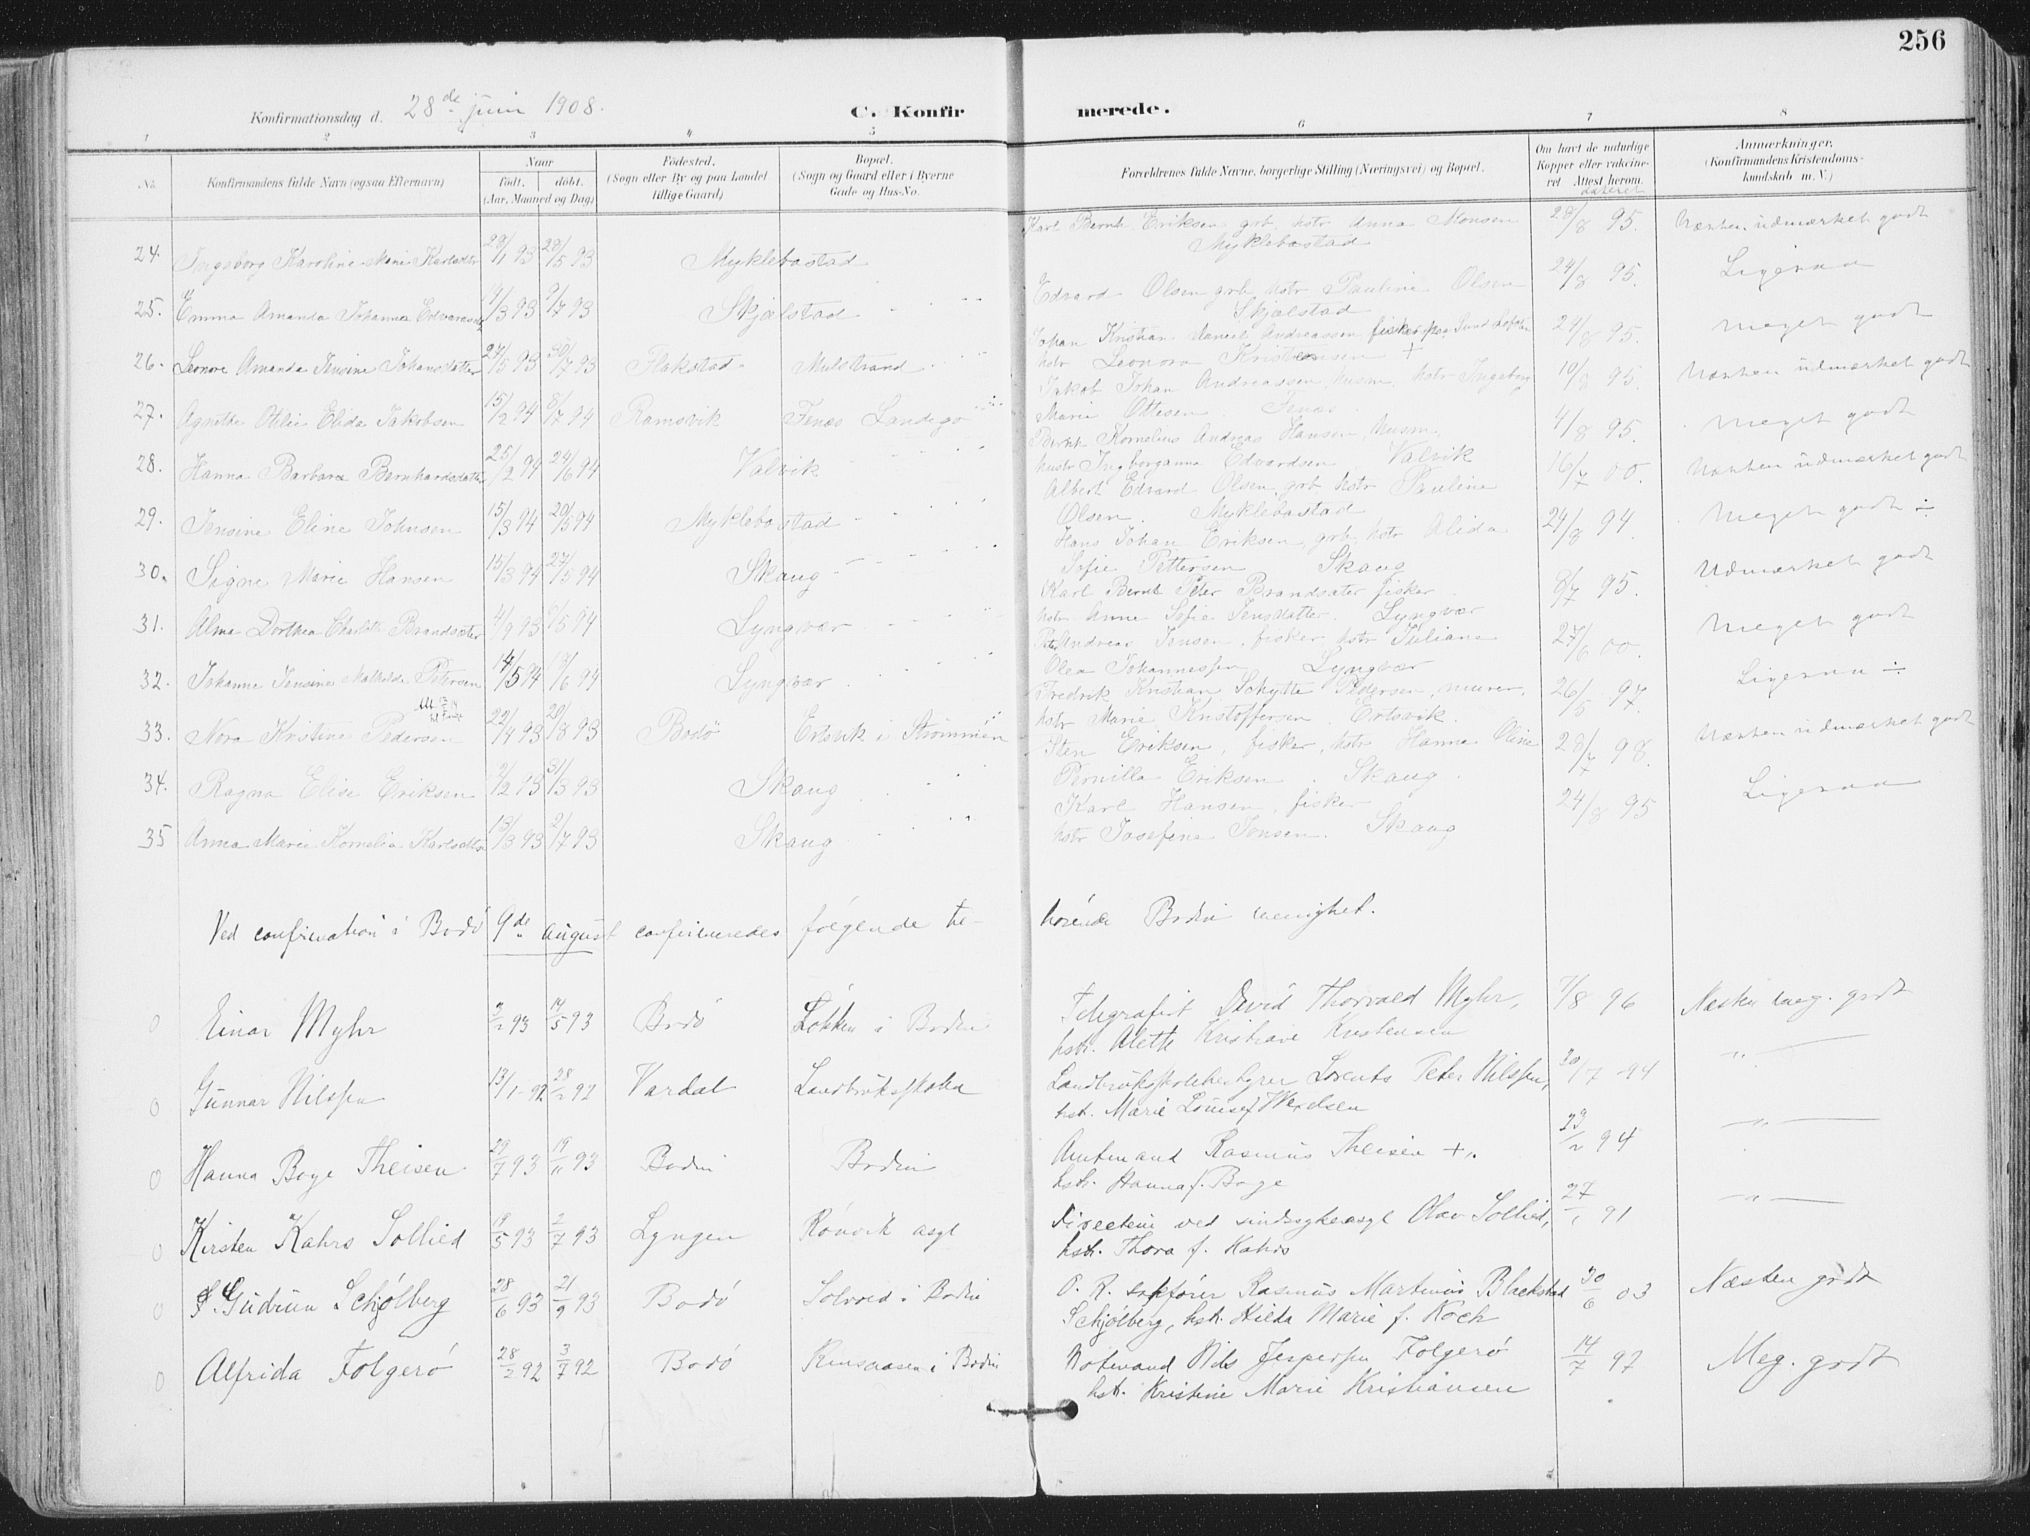 256
Konfirmationsdag d. 28de juni 1908.
C. Konfirmerede.
1 2 3 4 5 6 7 8
No.
Konfirmandens fulde Navn (ogsaa Efternavn)
Naar
født. døbt.
(Aar, Maaned og Dag)
Fødested.
(Sogn eller By og paa Landet
tillige Gaard)
Bopæl.
(Sogn og Gaard eller i Byerne
Gade og Hus-No.
Forældrenes fulde Navne, borgerlige Stilling (Næringsvei) og Bopæl.
Om havt de naturlige
Kopper eller vakcine-
ret Attest herom.
dateret
Anmærkninger,
(Konfirmandens Kristendoms-
kundskab m. V.)
24. Ingeborg Karoline Marie Karlsdtr 28/1 93 28/5 93 Myklebostad Karl Bernh. Eriksen grb. hstr Anna Monsen 28/8 95. Næsten udmærket godt
Myklebostad
25. Emma Amanda Johanna Edvardsdtr 14/3 93 9/7 93 Skjelstad Edvard Olsen grb. hstr Pauline Olsen 24/8 95. Ligesaa
Skjelstad
26. Leonore Amanda Jensine Johansdatter 27/5 93 30/7 93 Flakstad Mulstrand Johan Kristian Daniel Andreassen fisker paa Sund Lofoten 24/8 95. Meget godt
hstr Leonora Kristensen +
27. Agnethe Otilie Elida Jakobsen 15/2 94 8/7 94 Ramsvik Fenes Landego Jakob Johan Andreassen, husm. hstr Ingeborg 10/8 95. Næsten udmærket godt
Marie Ottesen Fenes
28. Hanna Barbara Bernhardsdatter 25/2 94 24/6 94 Valvik Bernh. Kornelius Andreas Hansen, husm. 4/8 95. Meget godt
hustr Ingborganna Edvardsen Valvik
29. Jensine Eline Johnsen 15/3 94 20/5 94 Myklebostad Albert Edvard Olsen grb. hstr Pauline 16/7 00. Næsten udmærket godt
Olsen. Myklebostad
30. Signe Marie Hansen 15/3 94 27/5 94 Skaug Hans Johan Eriksen, grb. hstr Alida 24/8 94. Meget godt ÷
Sofie Pettersen Skaug
31. Alma Dorthea Charlotte Brandsæter 4/9 93 Lyngvær Karl Bernt Peter Brandsæter fisker 8/7 95. Udmærket godt
hstr Anne Sofie Jensdatter. Lyngvær
32. Johanne Jensine Mathilde Petersen 14/5 94 17/6 94 Lyngvær Andreas Jensen, fisker, hstr Juliane 27/6 00. Meget godt
Olea Johannessen Lyngvær
33. Nora Kristine Pedersen 22/4 93 20/8 93 Bodø Ertsvik i Strømmen Fredrik Kristian Schytte Pedersen, murer, 26/5 97. Ligesaa ÷
hstr Marie Kristoffersen. Ertsvik.
34. Ragna Elise Eriksen 2/2 93 31/3 93 Skaug Sten Eriksen, fisker, hstr Hanna Oline 28/7 98. Næsten udmærket godt
Pernilla Eriksen. Skaug.
35 Anna Marie Kornelia Karlsdtr 13/3 93 2/7 93 Skaug Karl Hansen, fisker 24/8 95 Ligesaa
hstr Josefine Jensen. Skaug
Ved confirmation i Bodø 9de august confirmeredes følgende tilhørende Bodin menighet.
0 Einar Myhr 3/2 93 14/5 93 Bodø Løkken i Bodin Telegrafist David Thorvald Myhr, 7/8 96 Næsten meg. godt
hstr. Aleth Kristiane Kristensen
0 Gunnar Nilssen 13/1 92 28/2 92 Vardal Landbruksskolen Landbruksskolebestyrer Lorents Peter Nilssen, 30/7 94 — „ —
hst. Marie Louise f. Wexelsen
0 Hanna Boye Theisen 29/7 93 19/11 93 Bodin Bodin Amtmand Rasmus Theisen +, 23/2 94 — „ —
hstr. Hanna f. Boye
0 Kirsten Kahrs Sollied 19/5 93 2/7 93 Lyngen Rønvik asyl Direktør ved sindssykeasyl Olav Sollied, 27/1 91 — „ —
hstr. Thora f. Kahrs
0 Gudrun Schjølberg 28/6 93 21/9 93 Bodø Solvold i Bodin O. R. sakfører Rasmus Martinus Blackstad 30/6 03 Næsten godt
Schjølberg, hstr. Hilda Marie f. Koch
0 Alfrida Folgerø 28/2 92 3/7 92 Bodø Rensaasen i Bodin Notmand Nils Jespersen Folgerø 14/7 97 Meg. godt
hstr. Kristine Marie Kristiansen